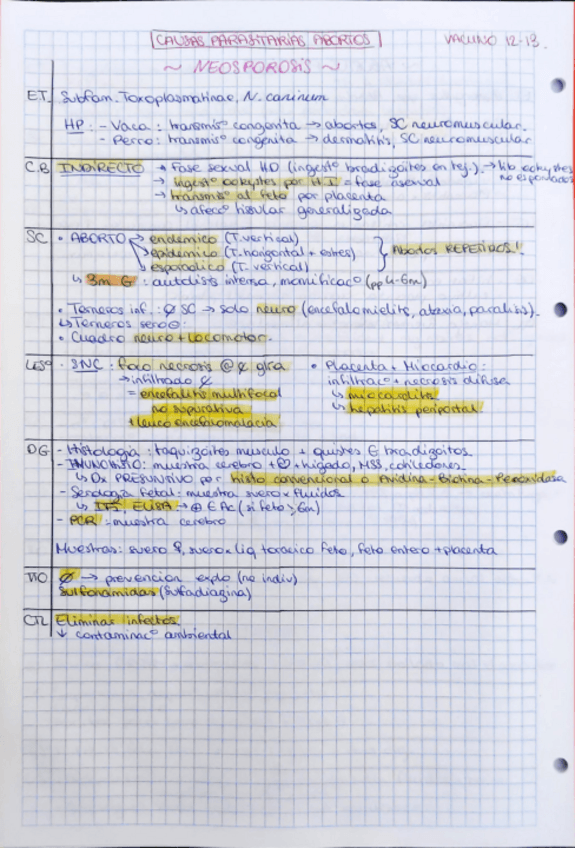 CAUSAS PARASITARIAS ABORTOS
VACUNO 12-13
~ NEOSPOROSIS ~
ET. Subfam. Toxoplasmatinae, N. caninum
HP: - Vaca: transmis° congenita → abortos, SC neuromuscular.
- Perro: transmis° congenita → dermatitis, SC neuromuscular
C.B INDIRECTO → Fase sexual HD (ingest° bradizoitos en tej.) → lib ookystes no esporulados
→ ingest° ookystes por H.I = fase asexual
→ transmis° al feto por placenta
↳ afecc° tisular generalizada
SC • ABORTO → endemico (T. vertical)
→ epidemico (T. horizontal + estres)
→ esporadico (T. vertical)
} Abortos REPETIDOS!
↳ 3m G: autolisis interna, momificac° (pp 4-6m)
• Terneros inf: Ø SC → solo neuro (encefalomielitis, ataxia, paralisis).
↳ Terneros sero⊖:
• Cuadro neuro + locomotor.
LES° • SNC: foco necrosis @ glia
→ infiltrado
= encefalitis multifocal
no supurativa
+ leucoencefalomalacia
• Placenta + Miocardio:
infiltrac° + necrosis difusa
↳ miocarditis
↳ hepatitis periportal
DG - Histologia: taquizoitos musculo + quistes bradizoitos
- INMUNOHISTO: muestra cerebro + + higado, cotiledones.
↳ Dx PRESUNTIVO por histo convencional o Avidina-Biotina-Peroxidasa
- Serologia fetal: muestra suero x fluidos
↳ ELISA → ⊕ Ac (si feto > 6m)
- PCR: muestra cerebro
Muestras: suero, suero x liq toracico feto, feto entero + placenta
TTO Ø → prevencion explo (no indiv)
Sulfonamidas (Sulfadiagina)
CTL Eliminar infectos.
↓ contaminac° ambiental